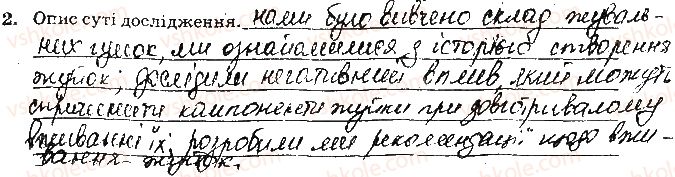 2. Опис суті дослідження. нами було вивчено склад жуваль-
них гумок, ми ознайомилися з історією створення
жуйок; дослідили негативний вплив який можуть
спричинити компоненти жуйки при довготривалому
вживанні їх; розробили ми рекомендації щодо вжи-
вання жуйок.